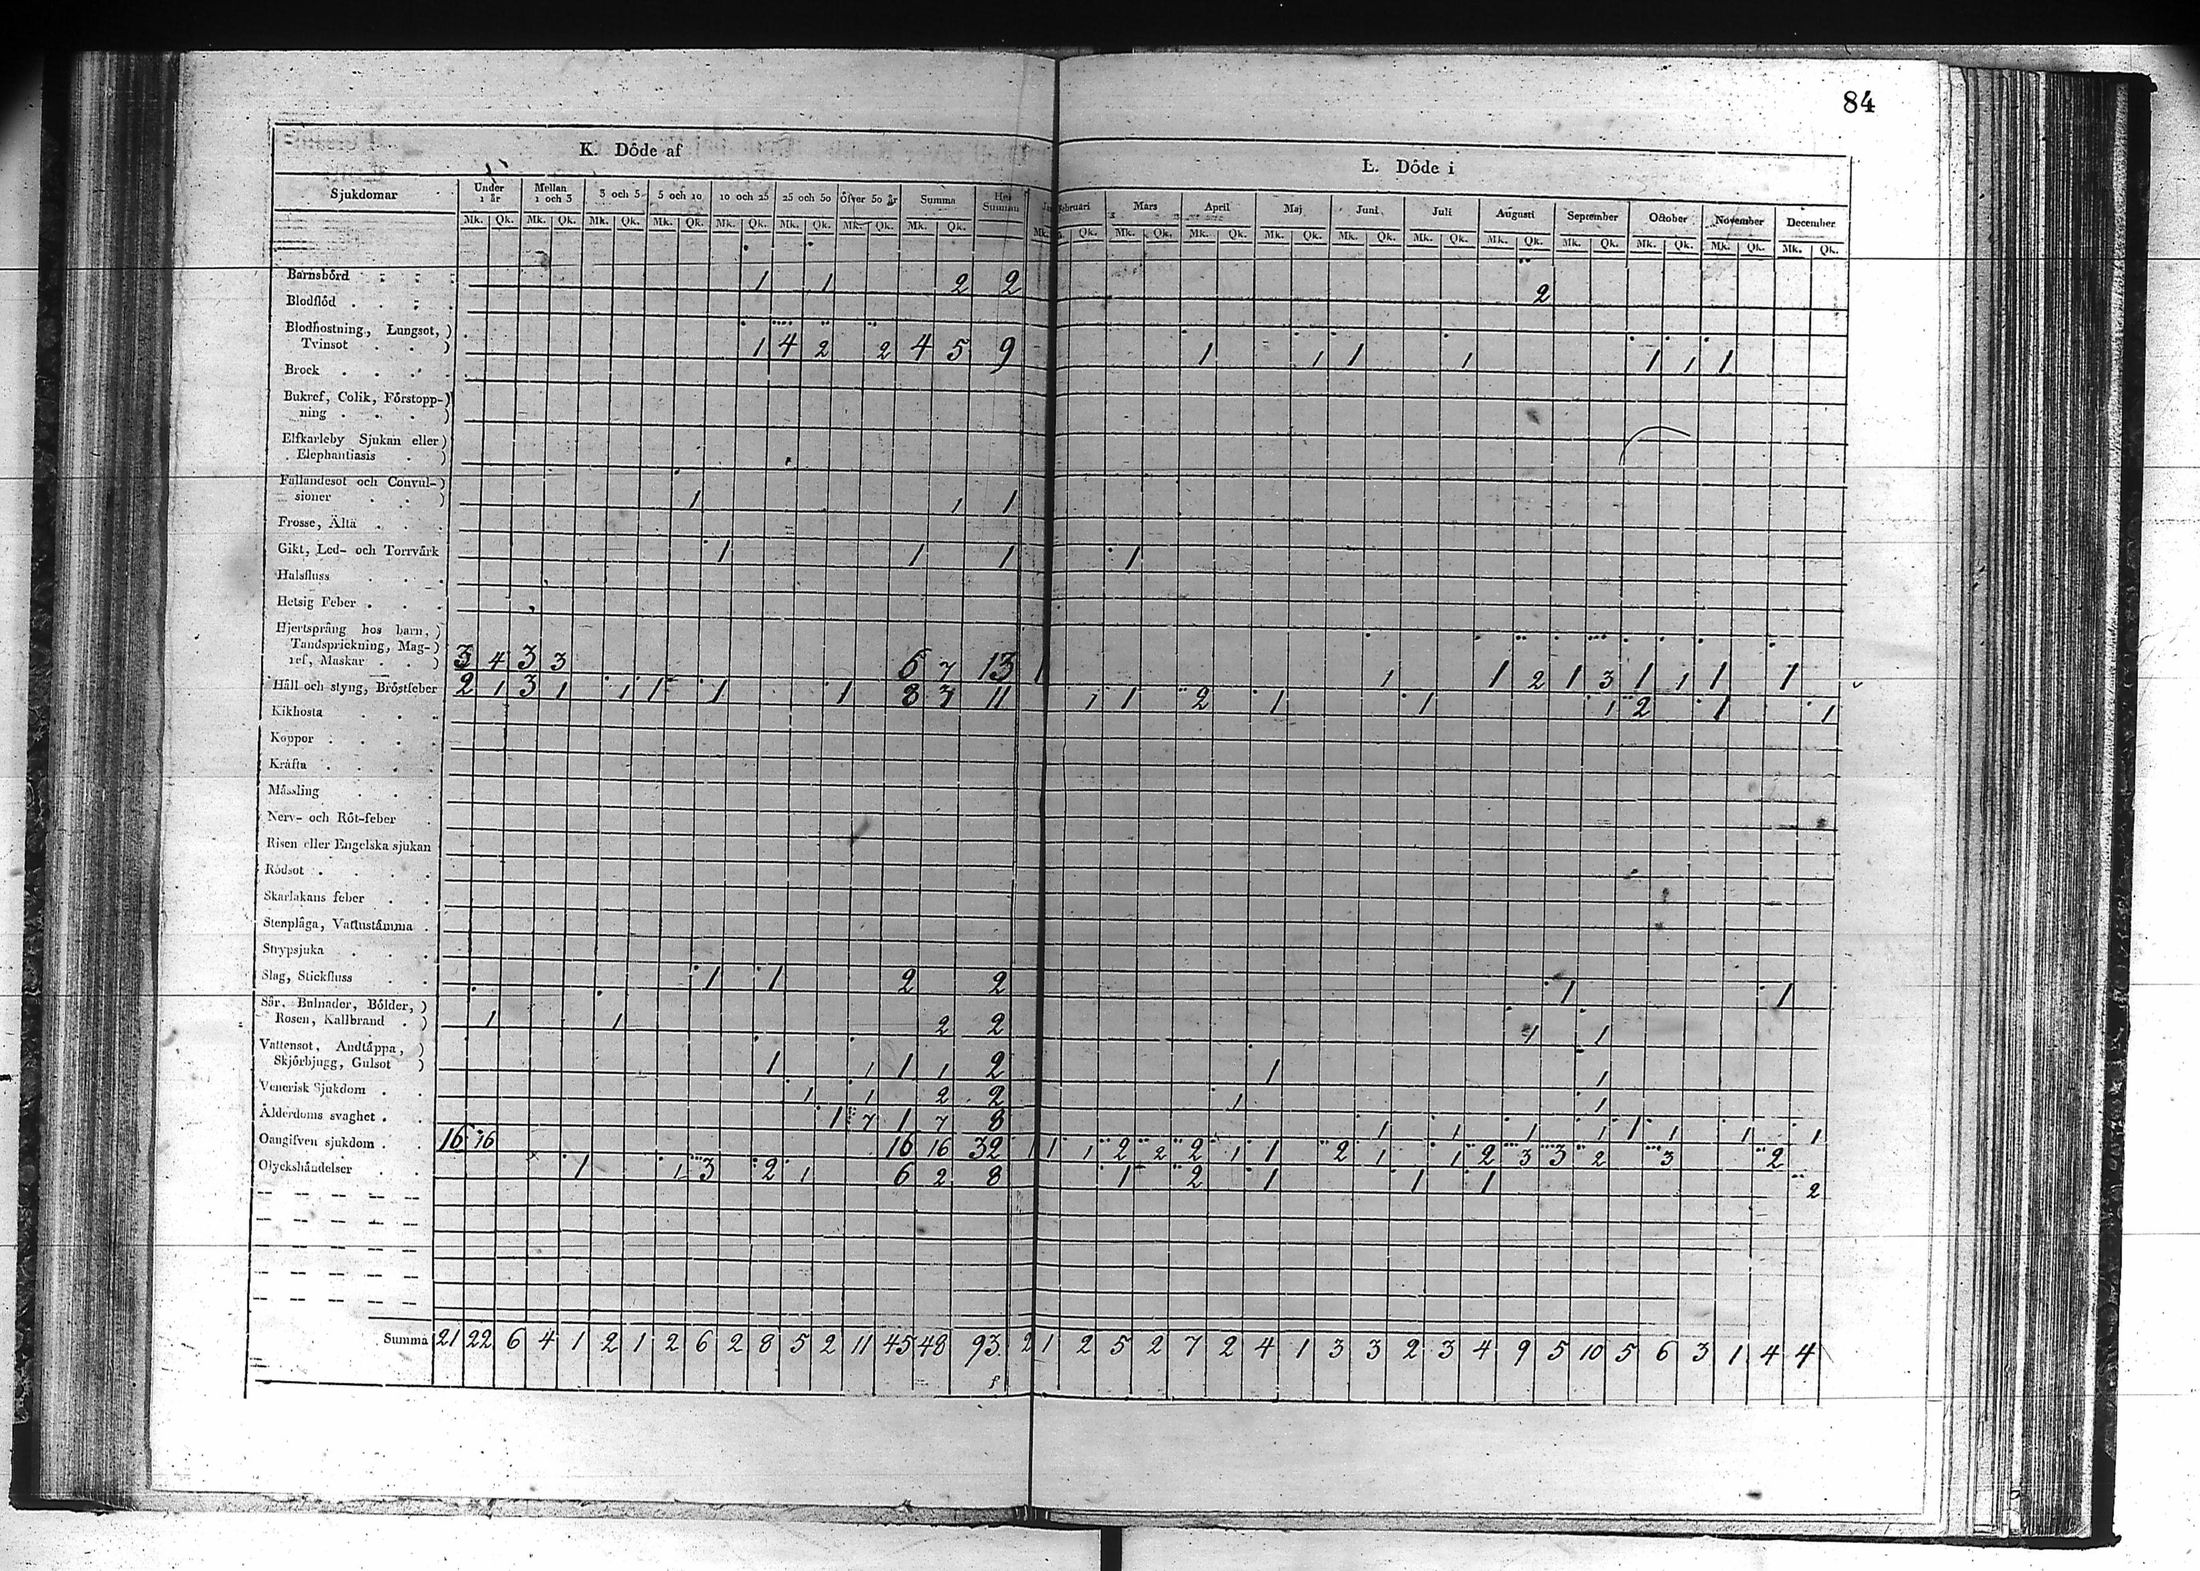 84
K. Döde af
L. Döde i
Sjukdomar Under 1 år Mellan 1 och 3 3 och 5 5 och 10 10 och 25 25 och 50 öfver 50 år Summa Hel Summa Februari Mars April Maj Juni Juli Augusti September October November December
Mk. Qk. Mk. Qk. Mk. Qk. Mk. Qk. Mk. Qk. Mk. Qk. Mk. Qk. Mk. Qk. Mk. Qk. Mk. Qk. Mk. Qk. Mk. Qk. Mk. Qk. Mk. Qk. Mk. Qk. Mk. Qk. Mk. Qk. Mk. Qk. Mk. Qk.
Barnsbörd 1 1 2 2 2
Blodflöd
Blodhostning, Lungsot,
Tvinsot 1 4 2 2 4 5 9 1 1 1 1 1 1 1
Brock
Bukref, Colik, Förstopp-
ning
Elfkarleby Sjukan eller
Elephantiasis
Fallandesot och Convul-
sioner 1 1 1
Frosse, Älta
Gikt, Led- och Torrvärk 1 1 1 1
Halsfluss
Hetsig Feber
Hjertsprång hos barn,
Tandsprickning, Mag-
ref, Maskar 3 4 3 3 6 7 13 1 1 1 2 1 3 1 1 1 1
Håll och styng, Bröstfeber 2 1 3 1 1 1 1 1 8 3 11 1 1 2 1 1 1 2 1 1
Kikhosta
Koppor
Kräfta
Mässling
Nerv- och Röt-feber
Risen eller Engelska sjukan
Rödsot
Skarlakans feber
Stenplåga, Vattustämma
Strypsjuka
Slag, Stickfluss 1 1 2 2 1 1
Sår, Bulnader, Bölder,
Rosen, Kallbrand 1 1 2 2 1 1
Vattensot, Andtäppa,
Skjörbjugg, Gulsot 1 1 1 1 2 1 1
Venerisk Sjukdom 1 1 2 2 1 1
Ålderdoms svaghet 1 7 1 7 8 1 1 1 1 1 1 1 1
Oangifven sjukdom 16 16 16 16 32 1 1 1 2 2 2 1 1 2 1 1 2 3 3 2 3 2
Olyckshändelser 1 1 3 2 1 6 2 8 1 2 1 1 1 2
Summa 21 22 6 4 1 2 1 2 6 2 8 5 2 11 45 48 93 2 1 2 5 2 7 2 4 1 3 3 2 3 4 9 5 10 5 6 3 1 4 4